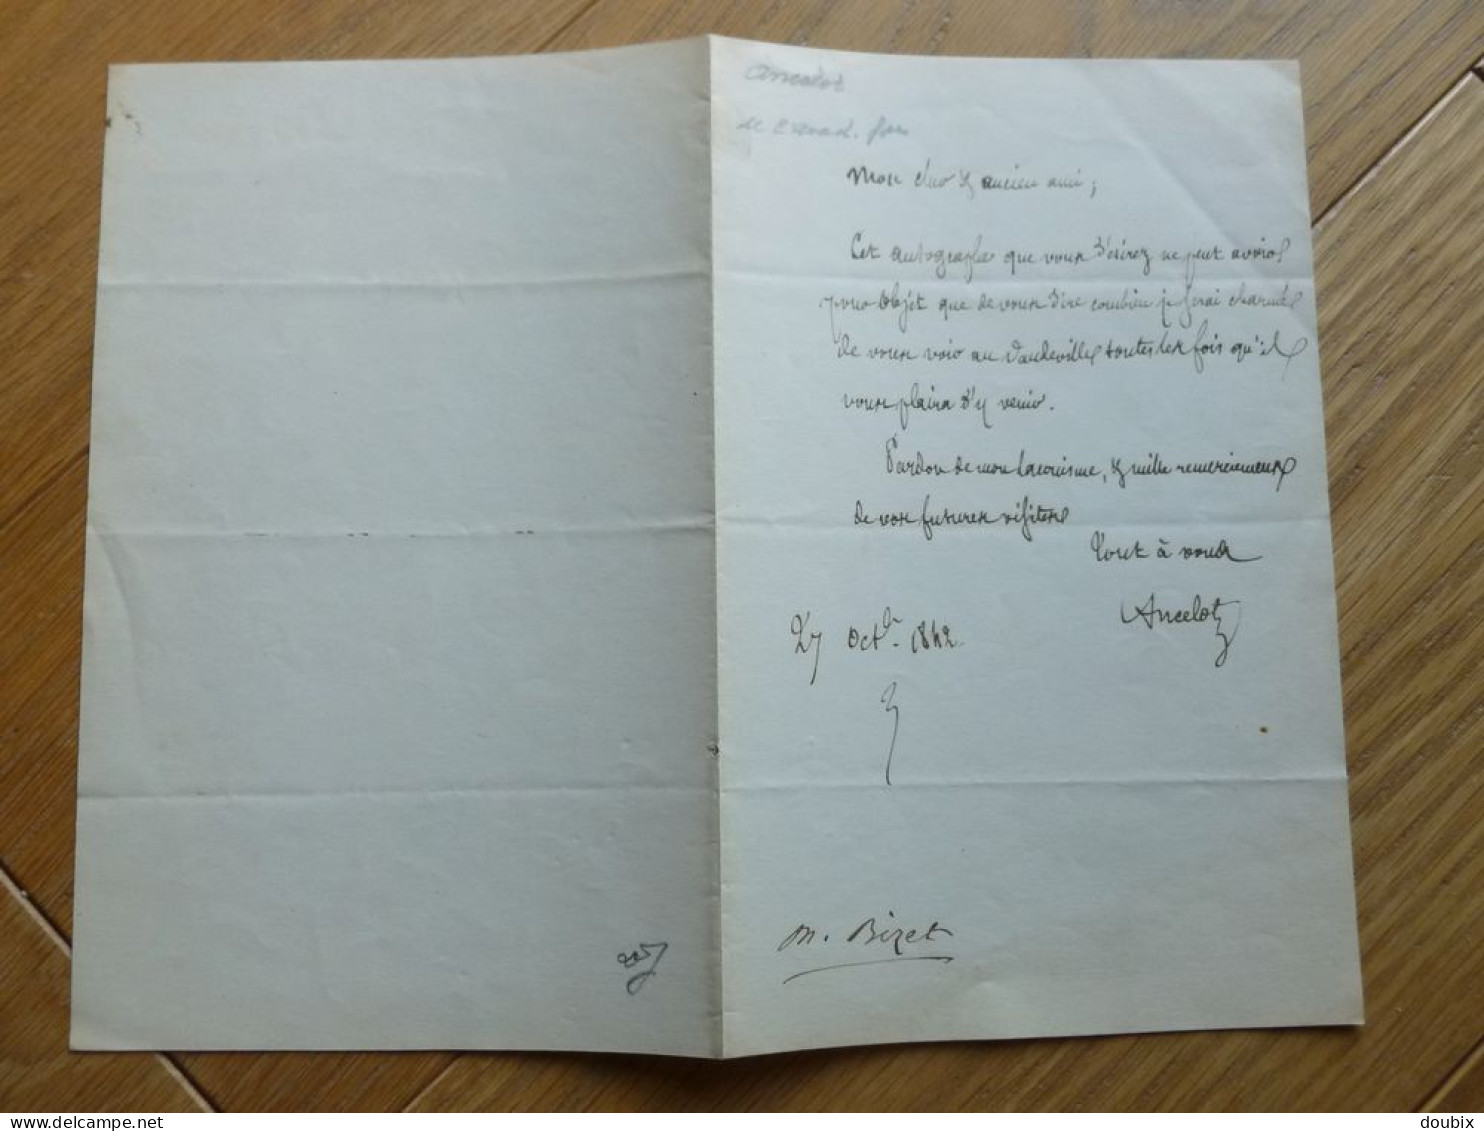 Ancelot
de l'Acad. franc
Mon cher & ancien ami;
Cet autographe que vous désirez ne peut avoir
pour objet que de vous dire combien je serai charmé
de vous voir au Vaudeville toutes les fois qu'il
vous plaira d'y venir.
Pardon de mon laconisme, & mille remerciements
de vos futures visites
Tout à vous
Ancelot
27 Octb. 1842.
M. Bizet
doubix